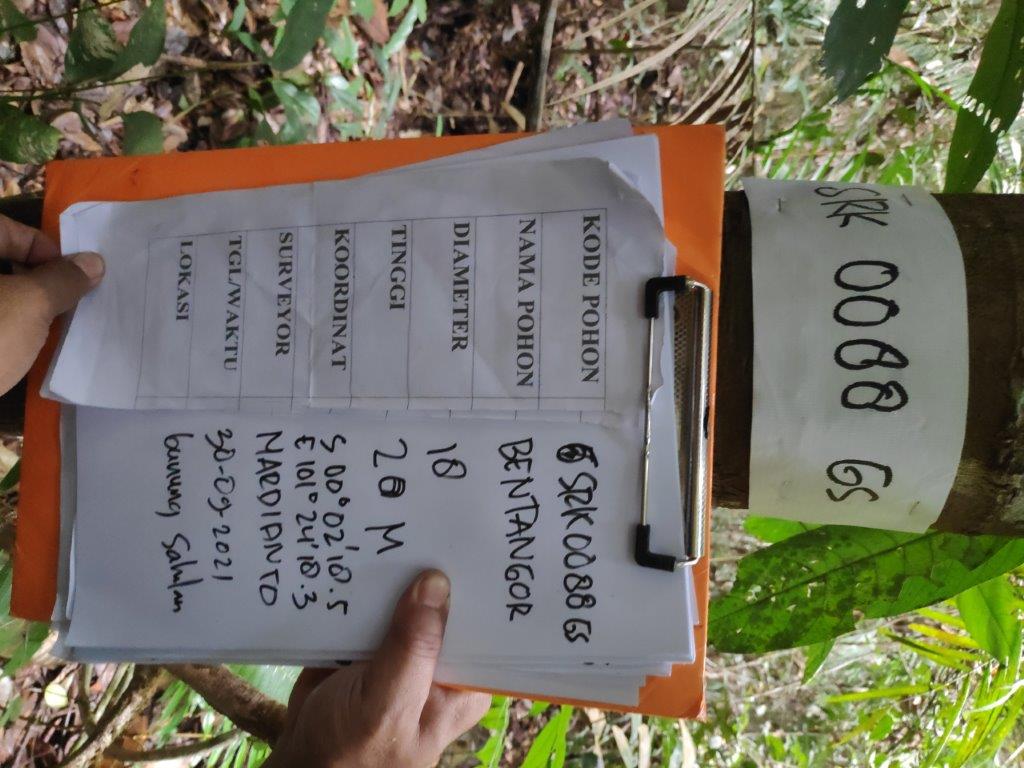 SRK 0088 GS
KODE POHON SRK 0088 GS
NAMA POHON BENTANGOR
DIAMETER 18
TINGGI 20 M
KOORDINAT S 00° 02' 18.5
E 101° 24' 18.3
SURVEYOR MARDIANTO
TGL/WAKTU 30-09-2021
LOKASI Gunung Sahilan